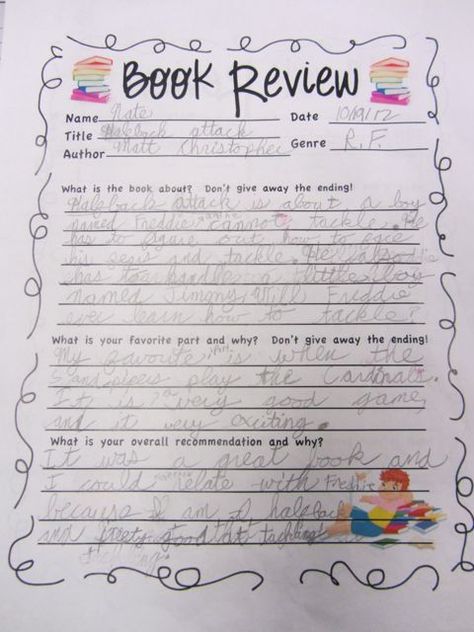 Book Review
Name Nate Date 10/19/12
Title Halfback attack
Author Matt Christopher Genre R.F.
What is the book about? Don't give away the ending!
Halfback attack is about a boy
named Freddie cannot tackle. He
has to figure out how to
his and tackle. He also
has to a little boy
named Jimmy. Will Freddie
ever learn how to tackle?
What is your favorite part and why? Don't give away the ending!
My favorite part is when the
Sandpipers play the Cardinals.
It is a very good game
and it very exciting.
What is your overall recommendation and why?
It was a great book and
I could relate with Freddie
because I am a halfback
and pretty good at tackling